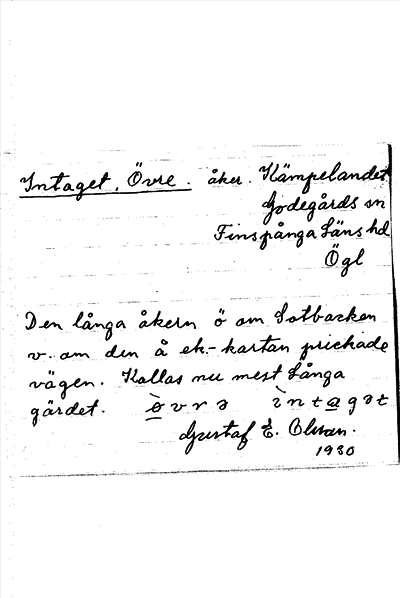 Intaget, Övre. åker. Kämpelandet
Godegårds sn
Finspånga Läns hd
Ögl
Den långa åkern ö om Sotbacken
v. om den å ek.-kartan prickade
vägen. Kallas nu mest Långa
gärdet. ò̲vrə ìnta̲gət
Gustaf E. Olsson.
1930